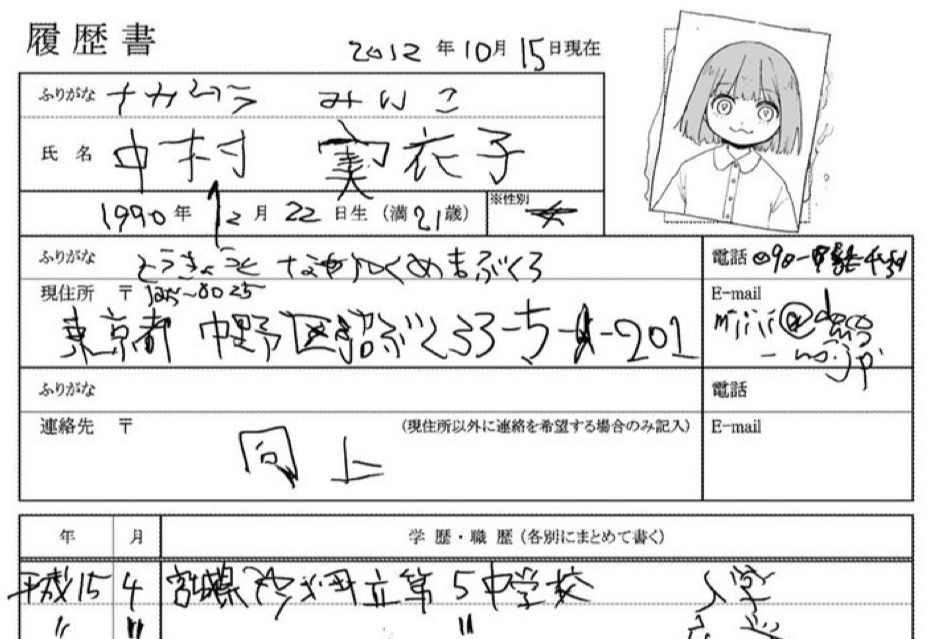 履歴書
2012年10月15日現在
ふりがな ナカムラ みいこ
氏名 中村 実衣子
1990年12月22日生(満21歳) ※性別 女
ふりがな とうきょうと なかのく ぬまぶくろ
電話 090-
現住所 〒125-8025
E-mail
東京都 中野区沼ぶくろ3-5-201
ふりがな
電話
連絡先 〒 (現住所以外に連絡を希望する場合のみ記入)
E-mail
同上
年 月 学歴・職歴(各別にまとめて書く)
平成15 4 宮城県 立第5中学校 入学
〃 〃 〃